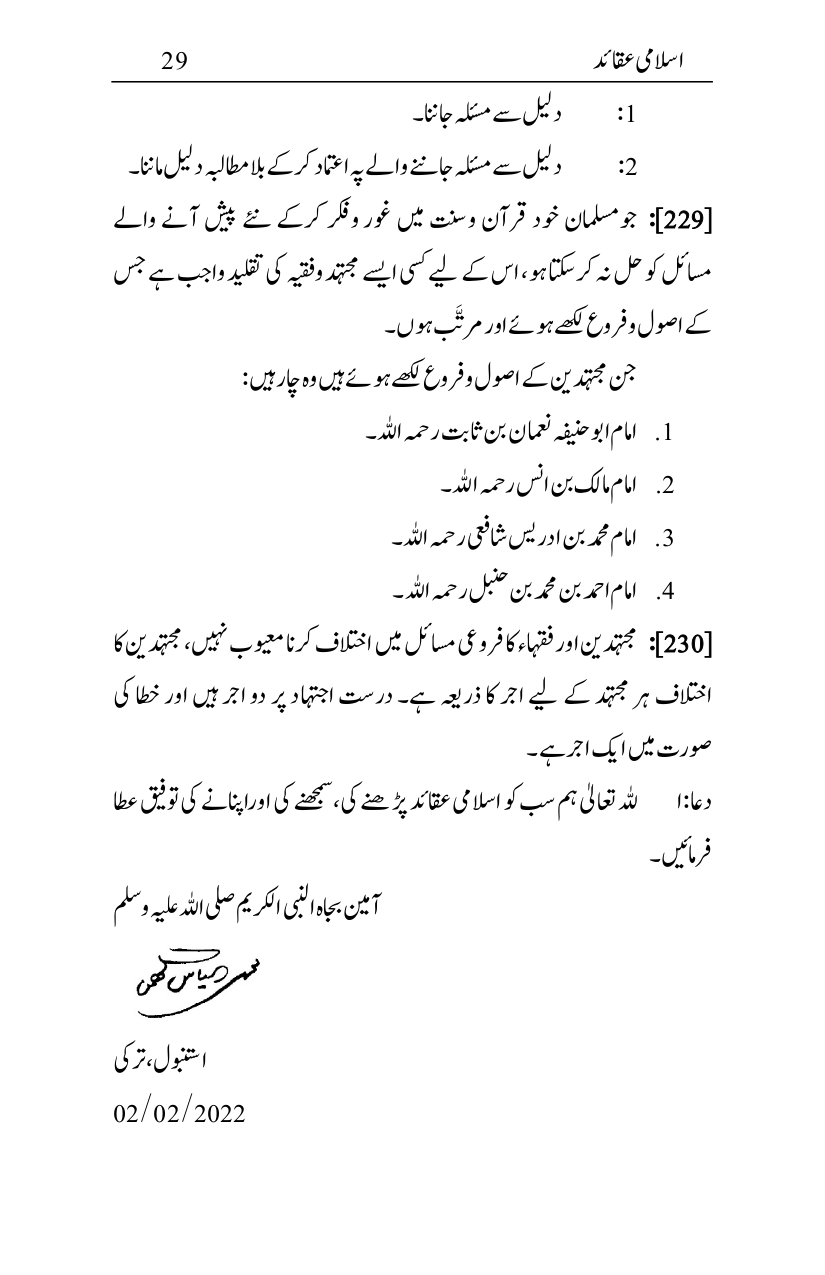 اسلامی عقائد 29
1: دلیل سے مسئلہ جاننا۔
2: دلیل سے مسئلہ جاننے والے پہ اعتماد کرکے بلا مطالبہ دلیل ماننا۔
[229]: جو مسلمان خود قرآن و سنت میں غور و فکر کرکے نئے پیش آنے والے
مسائل کو حل نہ کر سکتا ہو، اس کے لیے کسی ایسے مجتہد و فقیہ کی تقلید واجب ہے جس
کے اصول و فروع لکھے ہوئے اور مرتَّب ہوں۔
جن مجتہدین کے اصول و فروع لکھے ہوئے ہیں وہ چار ہیں:
1. امام ابو حنیفہ نعمان بن ثابت رحمہ اللہ۔
2. امام مالک بن انس رحمہ اللہ۔
3. امام محمد بن ادریس شافعی رحمہ اللہ۔
4. امام احمد بن محمد بن حنبل رحمہ اللہ۔
[230]: مجتہدین اور فقہاء کا فروعی مسائل میں اختلاف کرنا معیوب نہیں، مجتہدین کا
اختلاف ہر مجتہد کے لیے اجر کا ذریعہ ہے۔ درست اجتہاد پر دو اجر ہیں اور خطا کی
صورت میں ایک اجر ہے۔
دعا:ا للہ تعالیٰ ہم سب کو اسلامی عقائد پڑھنے کی، سمجھنے کی اور اپنانے کی توفیق عطا
فرمائیں۔
آمین بجاہ النبی الکریم صلی اللہ علیہ وسلم
استنبول، ترکی
02/02/2022